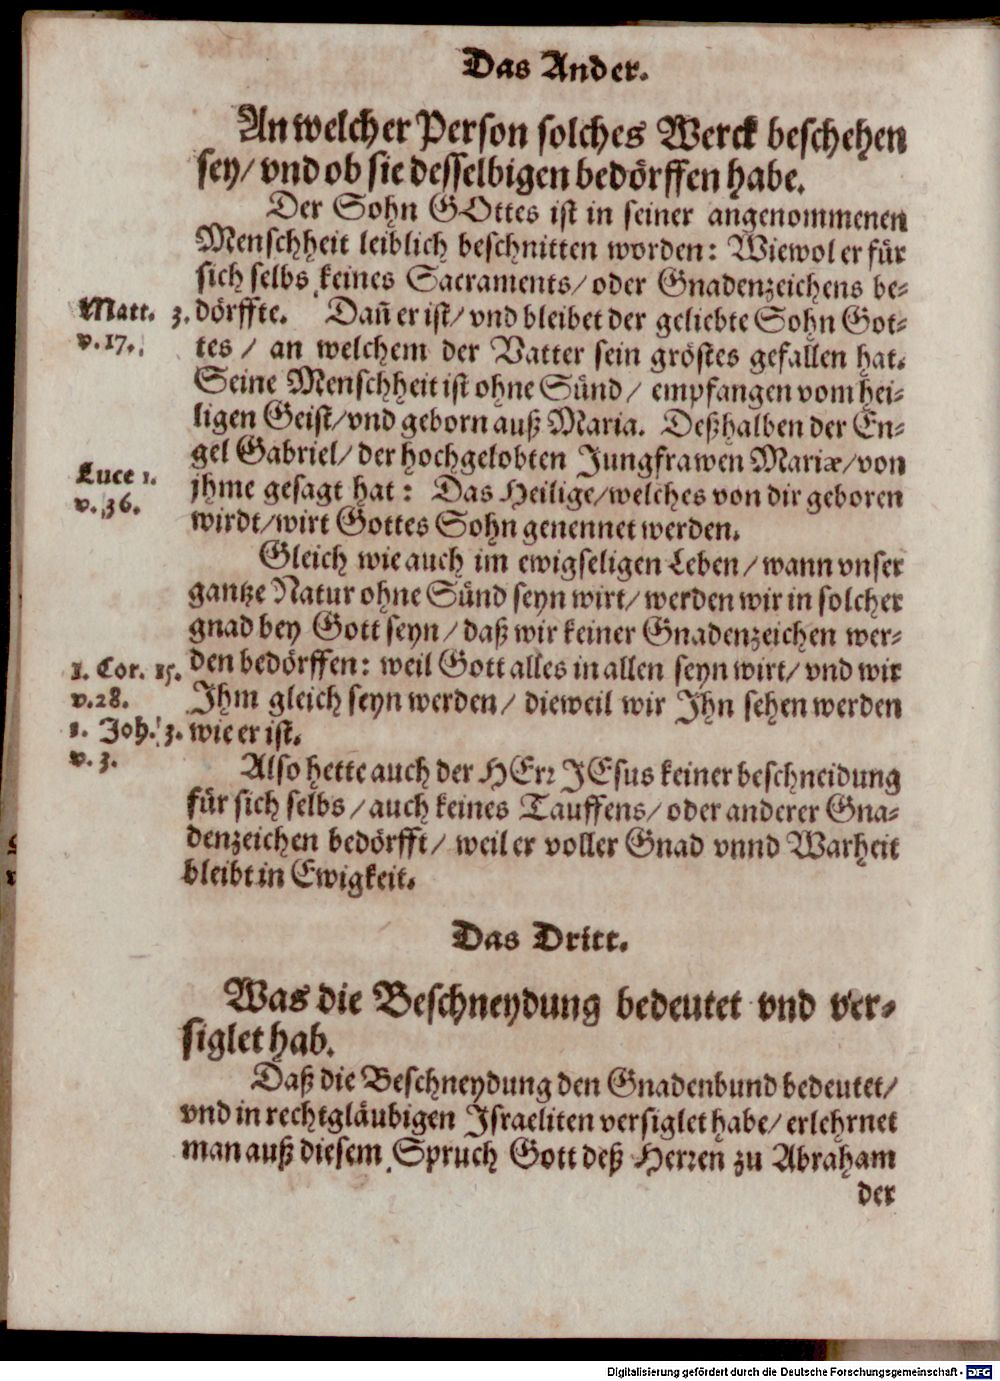 Das Ander.
An welcher Person solches Werck beschehen
sey/ vnd ob sie desselbigen bedörffen habe.
Der Sohn GOttes ist in seiner angenommenen
Menschheit leiblich beschnitten worden: Wiewol er für
sich selbs keines Sacraments/ oder Gnadenzeichens be-
Matt. 3. dörffte. Dañ er ist/ vnd bleibet der geliebte Sohn Got-
v. 17. tes / an welchem der Vatter sein gröstes gefallen hat.
Seine Menschheit ist ohne Sünd / empfangen vom hei-
ligen Geist/ vnd geborn auß Maria. Deßhalben der En-
gel Gabriel/ der hochgelobten Jungfrawen Mariæ/ von
Luce 1. jhme gesagt hat: Das Heilige/ welches von dir geboren
v. 36. wirdt/ wirt Gottes Sohn genennet werden.
Gleich wie auch im ewigseligen Leben / wann vnser
gantze Natur ohne Sünd seyn wirt/ werden wir in solcher
gnad bey Gott seyn / daß wir keiner Gnadenzeichen wer-
1. Cor. 15. den bedörffen: weil Gott alles in allen seyn wirt/ vnd wir
v. 28. Jhm gleich seyn werden / dieweil wir Jhn sehen werden
1. Joh. 3. wie er ist.
v. 3.
Also hette auch der HErr JEsus keiner beschneidung
für sich selbs / auch keines Tauffens/ oder anderer Gna-
denzeichen bedörfft/ weil er voller Gnad vnnd Warheit
bleibt in Ewigkeit.
Das Dritt.
Was die Beschneydung bedeutet vnd ver-
siglet hab.
Daß die Beschneydung den Gnadenbund bedeutet/
vnd in rechtgläubigen Israeliten versiglet habe/ erlehrnet
man auß diesem Spruch Gott deß Herren zu Abraham
der
Digitalisierung gefördert durch die Deutsche Forschungsgemeinschaft - DFG